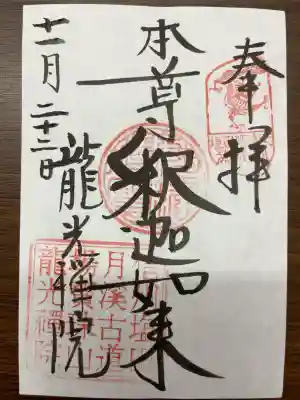 奉拝
本尊釈迦如来
十一月二十三日
龍光禅院
月溪古道
龍光禪院